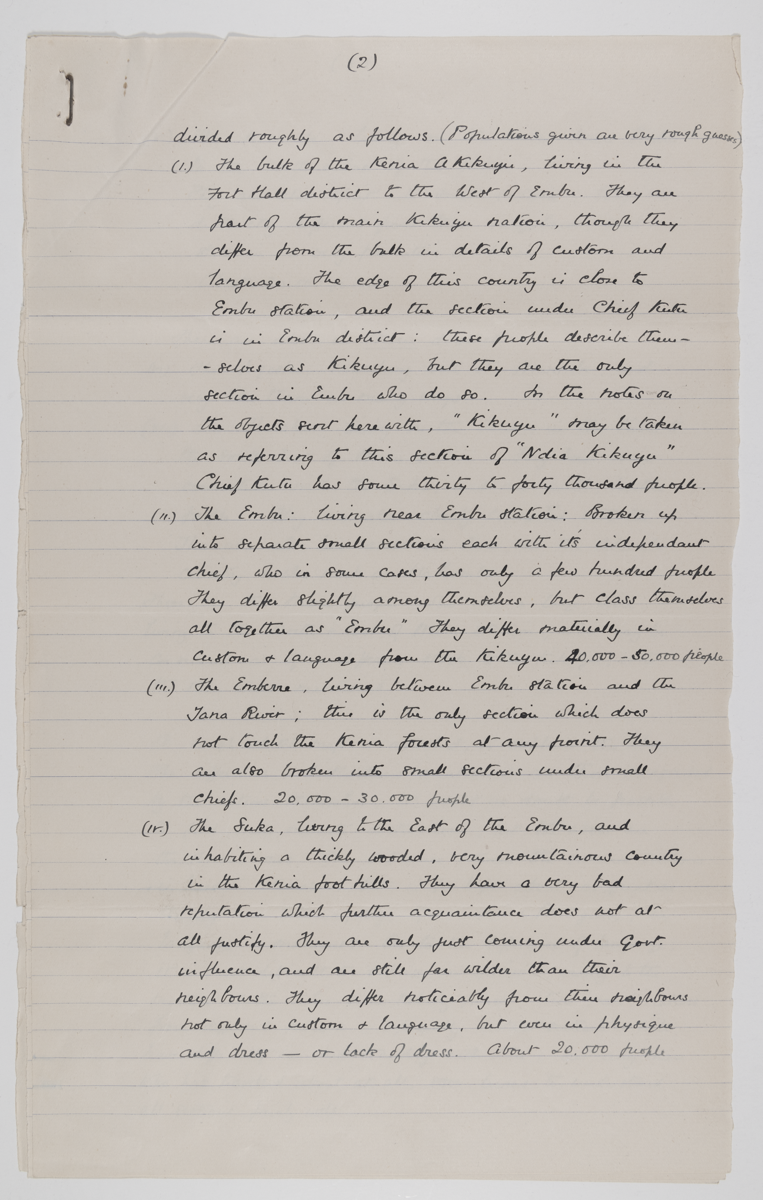 (2)
divided roughly as follows. (Populations given are very rough guesses)
(I.) The bulk of the Kenia AKikuyu, living in the
Fort Hall district to the West of Embu. They are
part of the main Kikuyu nation, though they
differ from the bulk in details of custom and
language. The edge of this country is close to
Embu station, and the section under Chief Kutu
is in Embu district: these people describe them-
-selves as Kikuyu, but they are the only
section in Embu who do so. In the notes on
the objects sent herewith, "Kikuyu" may be taken
as referring to this section of "Ndia Kikuyu"
Chief Kutu has some thirty to forty thousand people.
(II.) The Embu: living near Embu station: Broken up
into separate small sections each with its independant
chief, who in some cases, has only a few hundred people
They differ slightly among themselves, but class themselves
all together as "Embu" They differ materially in
custom & language from the Kikuyu. 40.000 - 50.000 people
(III.) The Emberre, living between Embu station and the
Tana River; this is the only section which does
not touch the Kenia forests at any point. They
are also broken into small sections under small
chiefs. 20.000 - 30.000 people
(IV.) The Suka, living to the East of the Embu, and
inhabiting a thickly wooded, very mountainous country
in the Kenia foot hills. They have a very bad
reputation which further acquaintance does not at
all justify. They are only just coming under Govt.
influence, and are still far wilder than their
neighbours. They differ noticeably from their neighbours
not only in custom & language, but even in physique
and dress — or lack of dress. About 20.000 people